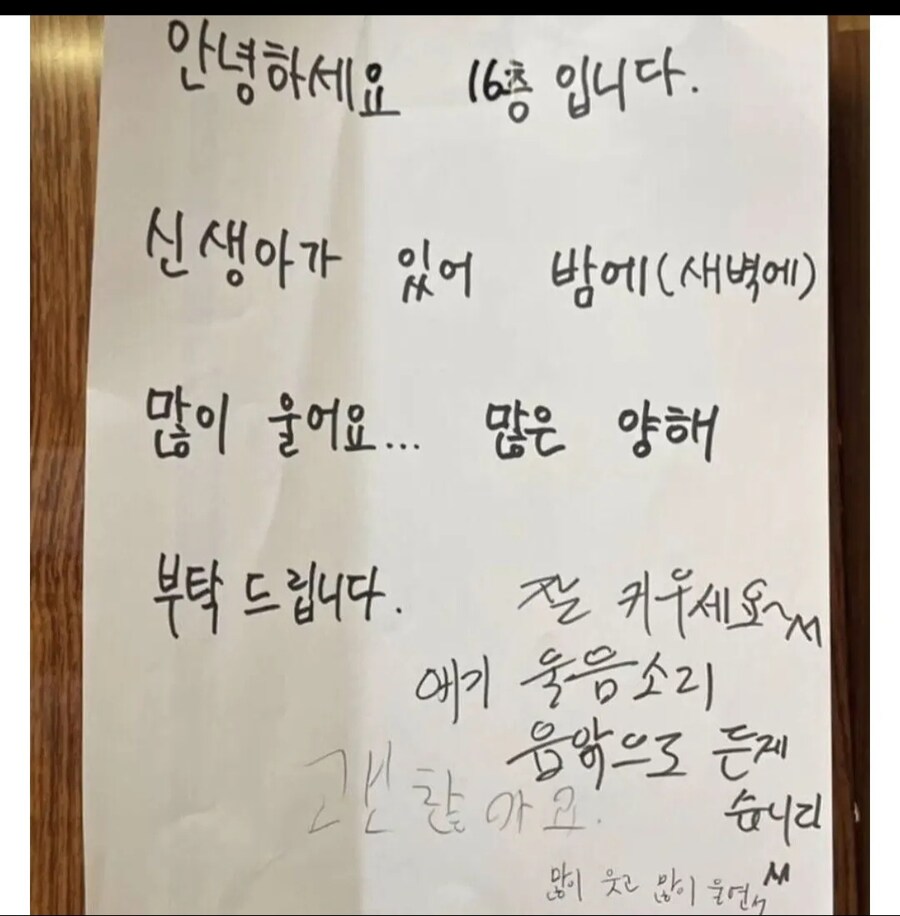 안녕하세요 16층 입니다.
신생아가 있어 밤에(새벽에)
많이 울어요... 많은 양해
부탁 드립니다.
잘 키우세요~
애기 울음소리
음악으로 듣겠
습니다
괜찮아요.
많이 웃고 많이